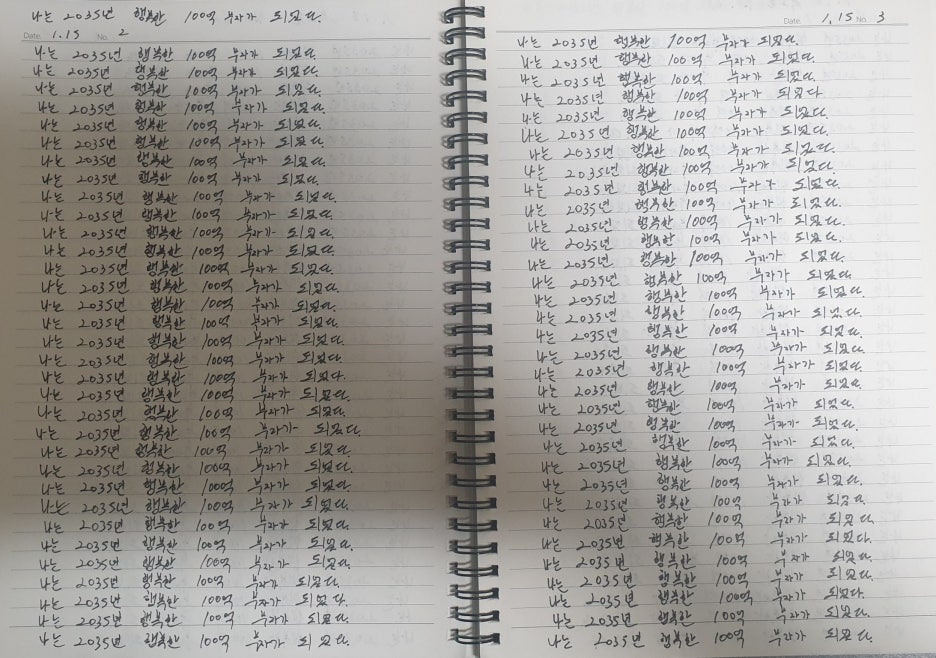 나는 2035년 행복한 100억 부자가 되었다.
Date. 1.15 No. 2
나는 2035년 행복한 100억 부자가 되었다.
나는 2035년 행복한 100억 부자가 되었다.
나는 2035년 행복한 100억 부자가 되었다.
나는 2035년 행복한 100억 부자가 되었다.
나는 2035년 행복한 100억 부자가 되었다.
나는 2035년 행복한 100억 부자가 되었다.
나는 2035년 행복한 100억 부자가 되었다.
나는 2035년 행복한 100억 부자가 되었다.
나는 2035년 행복한 100억 부자가 되었다.
나는 2035년 행복한 100억 부자가 되었다.
나는 2035년 행복한 100억 부자가 되었다.
나는 2035년 행복한 100억 부자가 되었다.
나는 2035년 행복한 100억 부자가 되었다.
나는 2035년 행복한 100억 부자가 되었다.
나는 2035년 행복한 100억 부자가 되었다.
나는 2035년 행복한 100억 부자가 되었다.
나는 2035년 행복한 100억 부자가 되었다.
나는 2035년 행복한 100억 부자가 되었다.
나는 2035년 행복한 100억 부자가 되었다.
나는 2035년 행복한 100억 부자가 되었다.
나는 2035년 행복한 100억 부자가 되었다.
나는 2035년 행복한 100억 부자가 되었다.
나는 2035년 행복한 100억 부자가 되었다.
나는 2035년 행복한 100억 부자가 되었다.
나는 2035년 행복한 100억 부자가 되었다.
나는 2035년 행복한 100억 부자가 되었다.
나는 2035년 행복한 100억 부자가 되었다.
나는 2035년 행복한 100억 부자가 되었다.
나는 2035년 행복한 100억 부자가 되었다.
나는 2035년 행복한 100억 부자가 되었다.
나는 2035년 행복한 100억 부자가 되었다.
나는 2035년 행복한 100억 부자가 되었다.
나는 2035년 행복한 100억 부자가 되었다.
Date. 1.15 No. 3
나는 2035년 행복한 100억 부자가 되었다.
나는 2035년 행복한 100억 부자가 되었다.
나는 2035년 행복한 100억 부자가 되었다.
나는 2035년 행복한 100억 부자가 되었다
나는 2035년 행복한 100억 부자가 되었다.
나는 2035년 행복한 100억 부자가 되었다.
나는 2035년 행복한 100억 부자가 되었다.
나는 2035년 행복한 100억 부자가 되었다.
나는 2035년 행복한 100억 부자가 되었다.
나는 2035년 행복한 100억 부자가 되었다.
나는 2035년 행복한 100억 부자가 되었다.
나는 2035년 행복한 100억 부자가 되었다.
나는 2035년 행복한 100억 부자가 되었다.
나는 2035년 행복한 100억 부자가 되었다.
나는 2035년 행복한 100억 부자가 되었다.
나는 2035년 행복한 100억 부자가 되었다.
나는 2035년 행복한 100억 부자가 되었다.
나는 2035년 행복한 100억 부자가 되었다.
나는 2035년 행복한 100억 부자가 되었다.
나는 2035년 행복한 100억 부자가 되었다.
나는 2035년 행복한 100억 부자가 되었다.
나는 2035년 행복한 100억 부자가 되었다.
나는 2035년 행복한 100억 부자가 되었다.
나는 2035년 행복한 100억 부자가 되었다.
나는 2035년 행복한 100억 부자가 되었다.
나는 2035년 행복한 100억 부자가 되었다.
나는 2035년 행복한 100억 부자가 되었다.
나는 2035년 행복한 100억 부자가 되었다.
나는 2035년 행복한 100억 부자가 되었다.
나는 2035년 행복한 100억 부자가 되었다.
나는 2035년 행복한 100억 부자가 되었다.
나는 2035년 행복한 100억 부자가 되었다.
나는 2035년 행복한 100억 부자가 되었다.